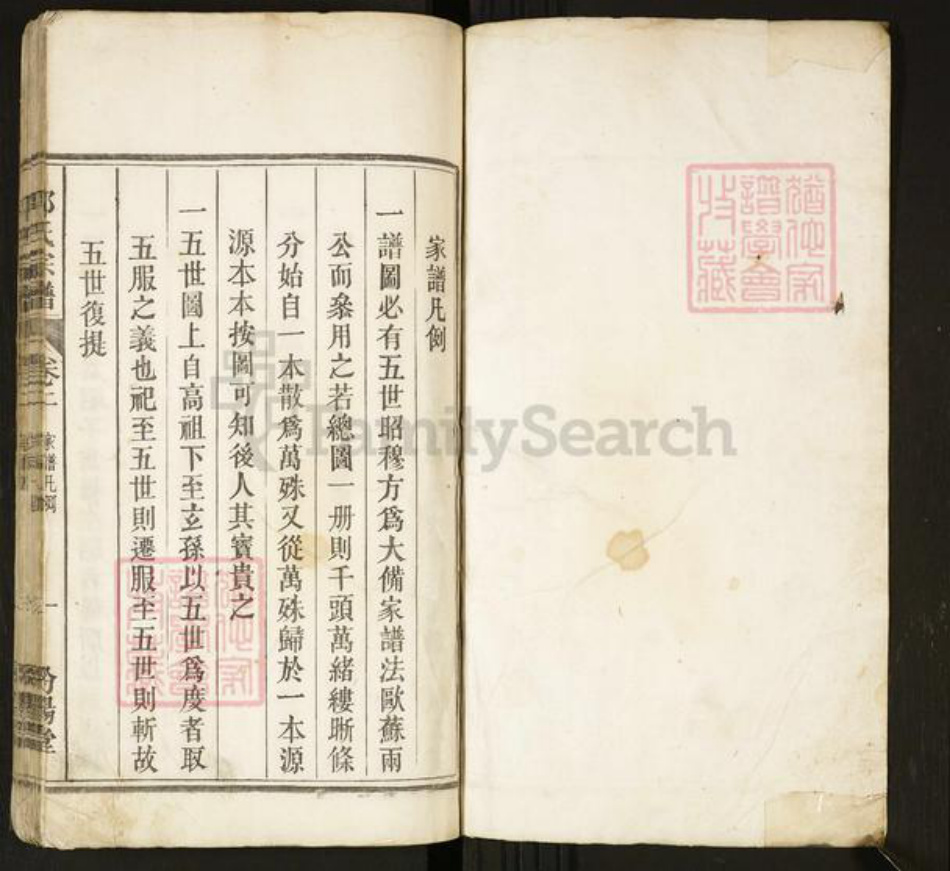 猶他家
譜學會
收藏
家譜凡例
一譜圖必有五世昭穆方爲大備家譜法歐蘇兩
公而叅用之若總圖一册則千頭萬緒縷晰條
分始自一本散爲萬殊又從萬殊歸於一本源
源本本按圖可知後人其寳貴之
一五世圖上自高祖下至玄孫以五世爲度者取
五服之義也祀至五世則遷服至五世則斬故
五世復提
氏宗譜
卷二
家譜凡例
一
汾陽堂
FamilySearch